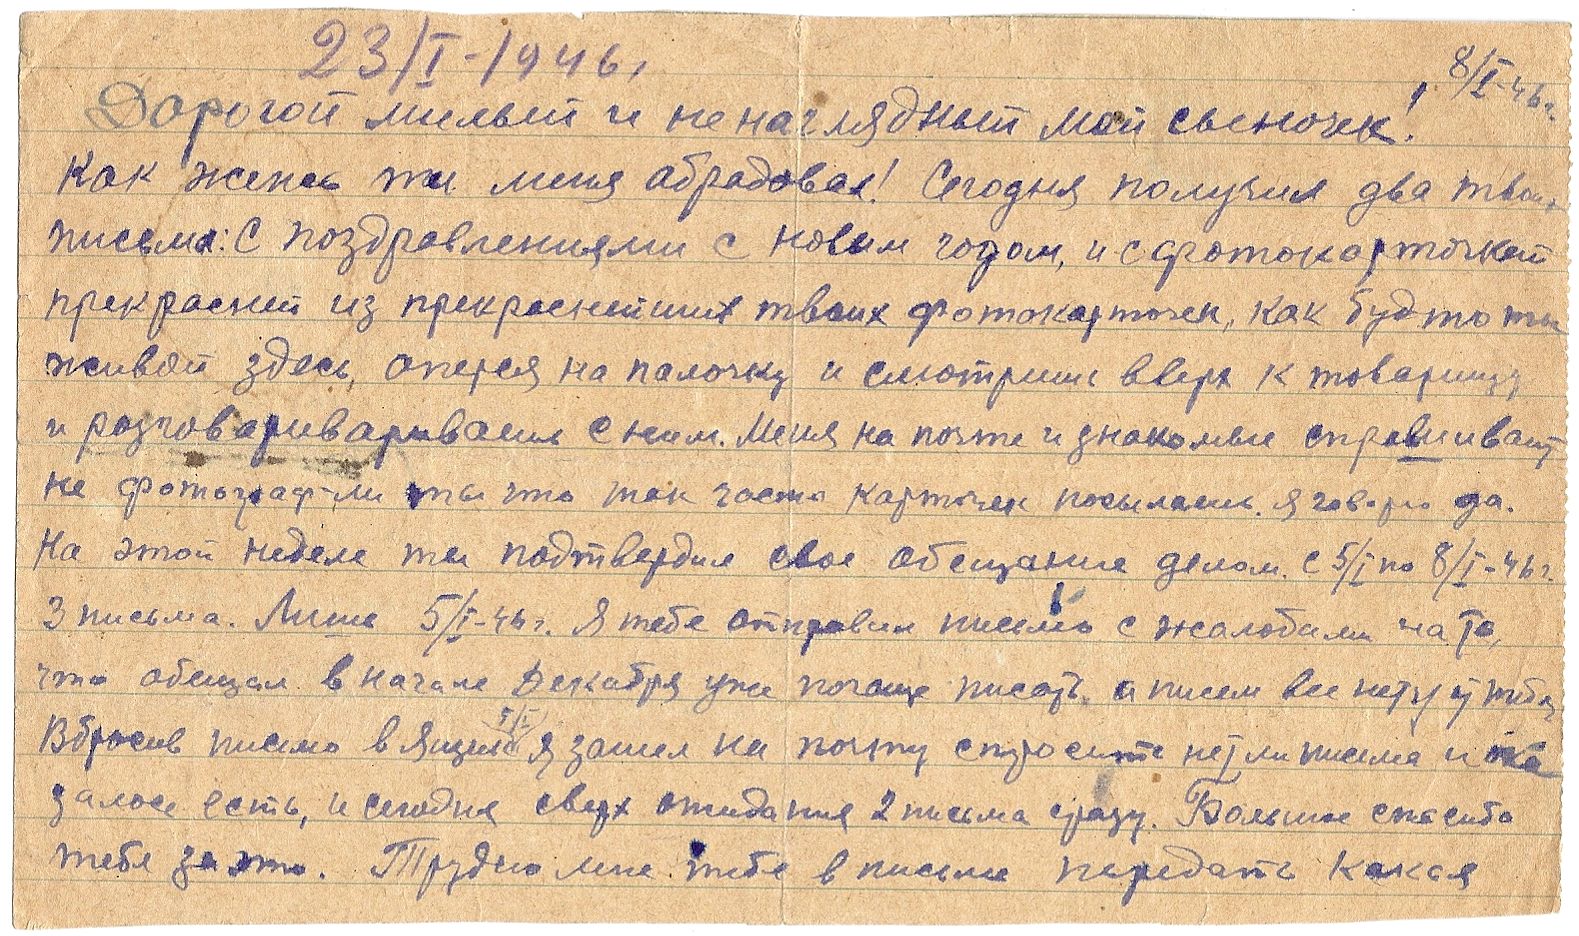 23/I-1946г.
8/I-46г.
Дорогой милый и ненаглядный мой сыночек!
Как жень ты меня абрадовал! Сегодня получил два твоих
письма: С поздравлениями с новым годом, и с фотокарточкой
прекрасней из прекраснейших твоих фотокарточек, как будто ты
живой здесь, оперся на палочку и смотришь вверх к товарищу
и разговаривариваешь с ним. Меня на почте и знакомые спрашивают
не фотограф, ли ты что так часто карточек посылаешь. я говорю да.
На этой неделе ты подтвердил свое обещание делом. с 5/I по 8/I-46г.
3 письма. Лишь 5/I-46г. Я тебе отправил письмо с жалобами на то,
что обещал в начале декабря уже почаще писать, а писем все нету у тебя
Вбросив письмо в ящик 5/I я зашел на почту спросить нет ли письма и ока
залось есть, и сегодня сверх ожидания 2 письма сразу. Большое спасибо
тебе за это. Трудно мне тебе в письме передать какая